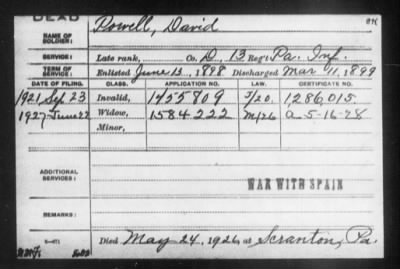 DEAD
NAME OF SOLDIER: Powell, David
SERVICE: Late rank, Co. D, 13 Reg't Pa. Inf.
TERM OF SERVICE: Enlisted June 13, 1898 Discharged Mar 11, 1899
DATE OF FILING. CLASS. APPLICATION NO. LAW. CERTIFICATE NO.
1921 Sep 23 Invalid, 1455809 5/20. 1,286,015.
1927 June 22 Widow, 1584222 M/26 a 5-16-28
Minor,
ADDITIONAL SERVICES:
WAR WITH SPAIN
REMARKS:
Died May 24, 1926, at Scranton, Pa.